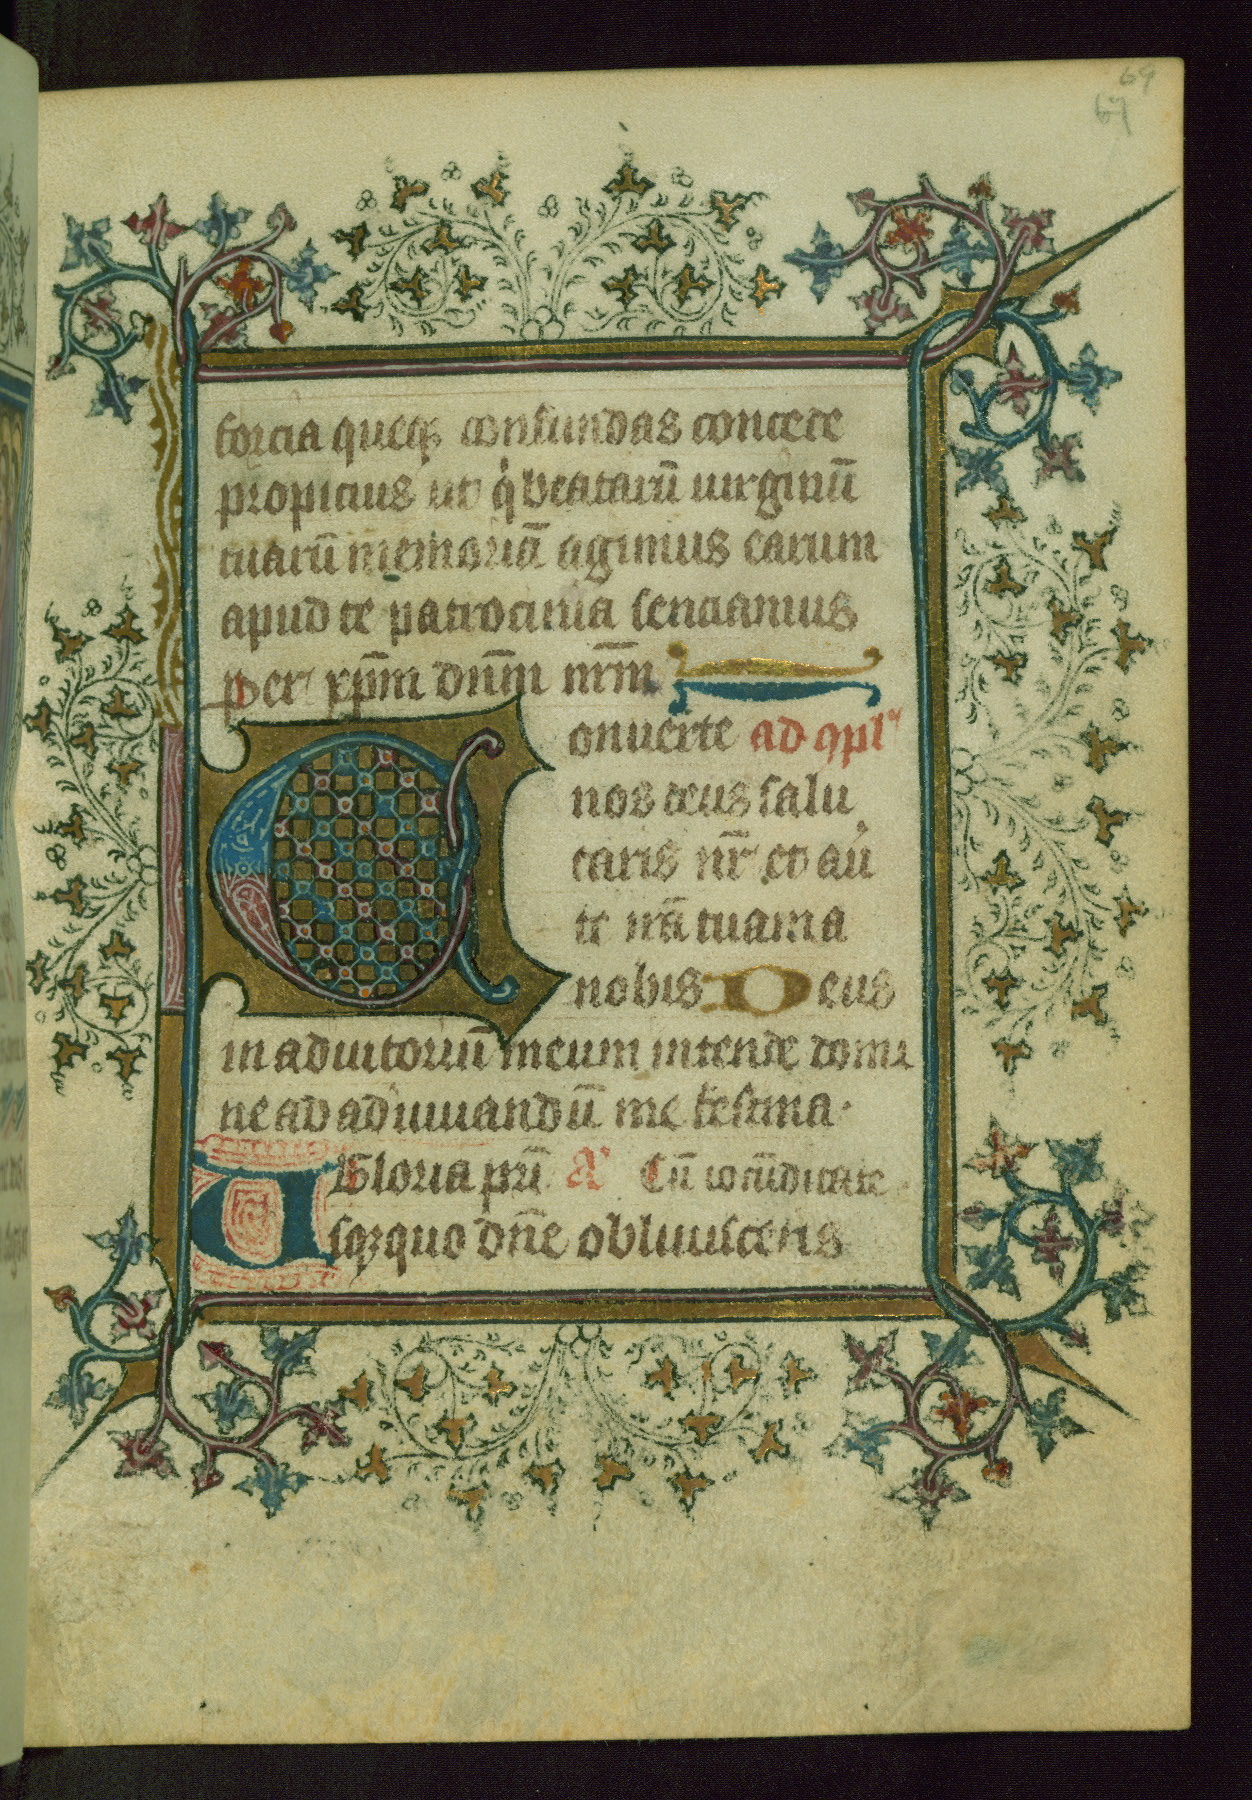 69
67
forcia queqȝ confundas concede
propicius ut q̇ beatarū uirginū
tuarū memoriā agimus earum
apud te patrocinia senciamus
Per xp̄m dn̄m nr̄m
Conuerte ad 9pl'
nos deus salu
taris nr̄ et au̇
te irā tuam a
nobis Deus
in adiutoriū meum intende domi
ne ad adiuuandū me festina·
Gloria pr̄i A' Cū iocūditate
Usqȝquo dn̄e obliuisceris